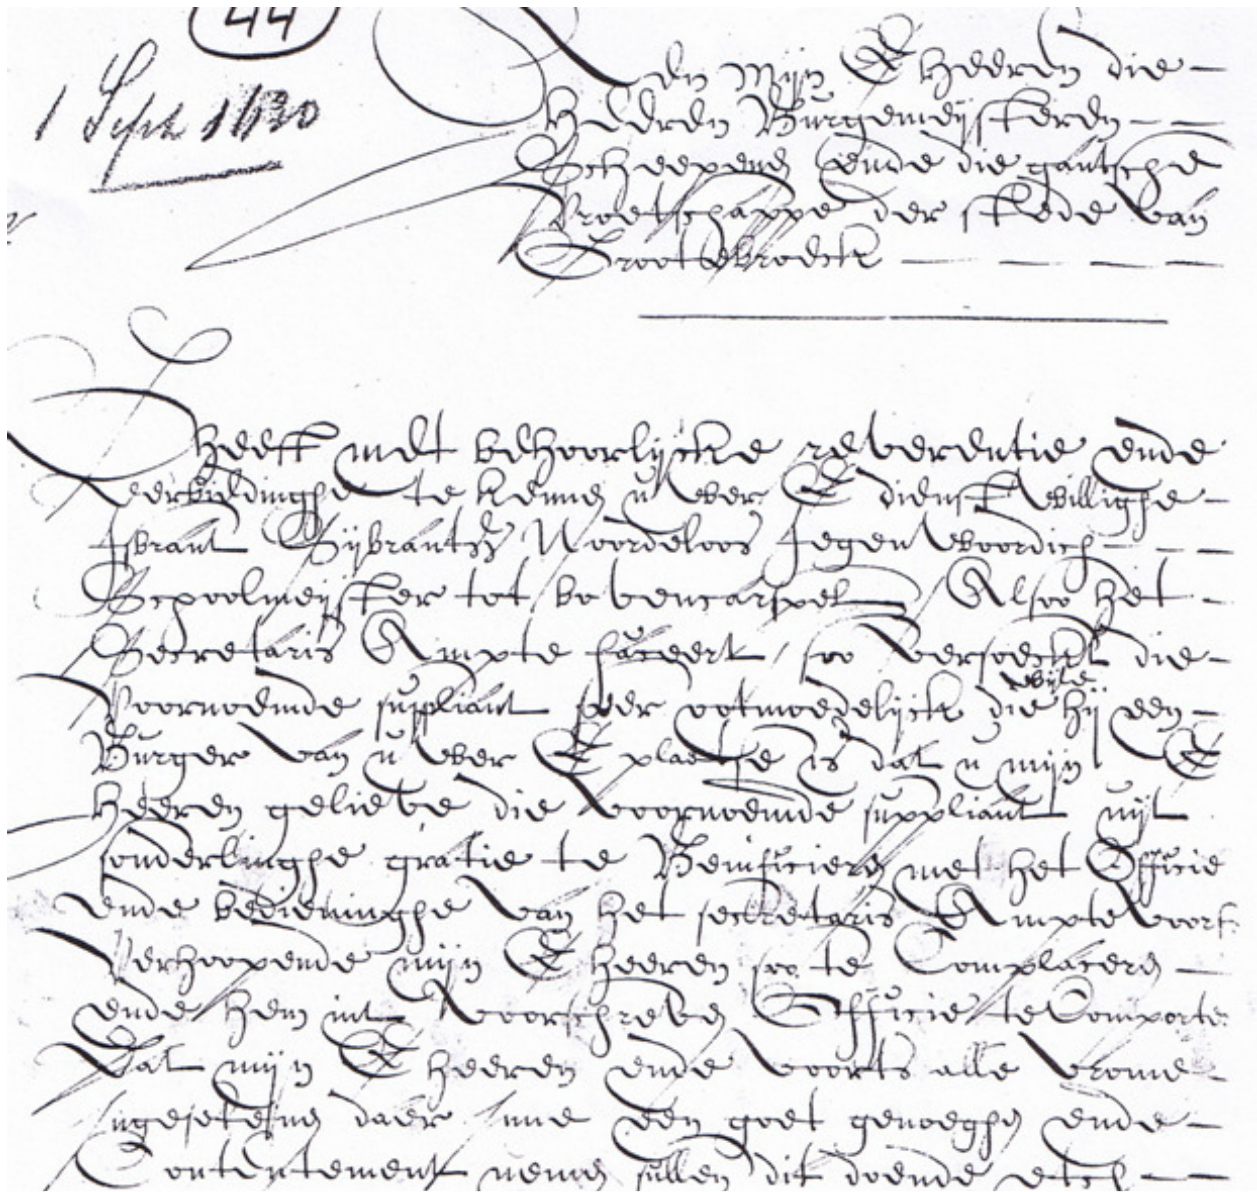 44
1 Sept 1630
Aen Mijn E Heeren die
Heeren Burgemeijsteren
Scheepens ende die gantsche
Vroetschappe der stede van
Grootebroeck
Gheeft met behoorlijcke reverentie ende
eerbiedinghe te kennen uwer E dienstwillighe
Isbrant Sijbrantsz Noordeloos Jegenwoordich
Schoolmeijster tot bovencarspel Alsoo het
Secretaris Ampte vaceert soo versoeckt die
Voornoemde suppliant seer ootmoedelijck die
wijle
hij een
Burger van uwer E plaetse is dat u mijn E
Heeren gelieve die voornoemde suppliant uijt
sonderlinghe gratie te Benificieren met het Officie
ende bedieninghe van het secretaris Ampte voors
Verhoopende mijn E Heeren soo te Complaceren
ende hem int voorschreven Officie te Comporte
Dat mijn E Heeren ende voorts alle vrome
ingesetenen daer inne een goet genoeghen ende
Contentement nemen sullen dit doende etc